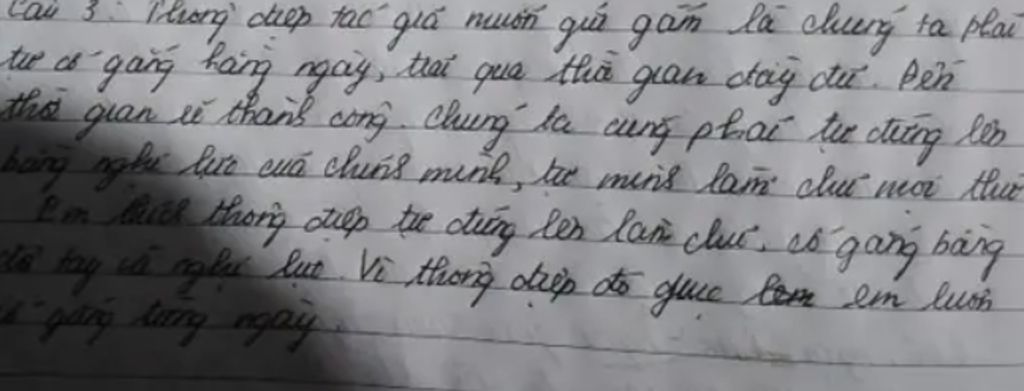 Câu 3: Thông điệp tác giả muốn gửi gắm là chúng ta phải
tự cố gắng hằng ngày, trải qua thời gian đầy đủ. Đến
thời gian sẽ thành công. Chúng ta cũng phải tự đứng lên
bằng nghị lực của chính mình, tự mình làm chủ mọi thứ
Em thích thông điệp tự đứng lên làm chủ, cố gắng bằng
đôi tay và nghị lực. Vì thông điệp đó giúp em luôn
cố gắng từng ngày.